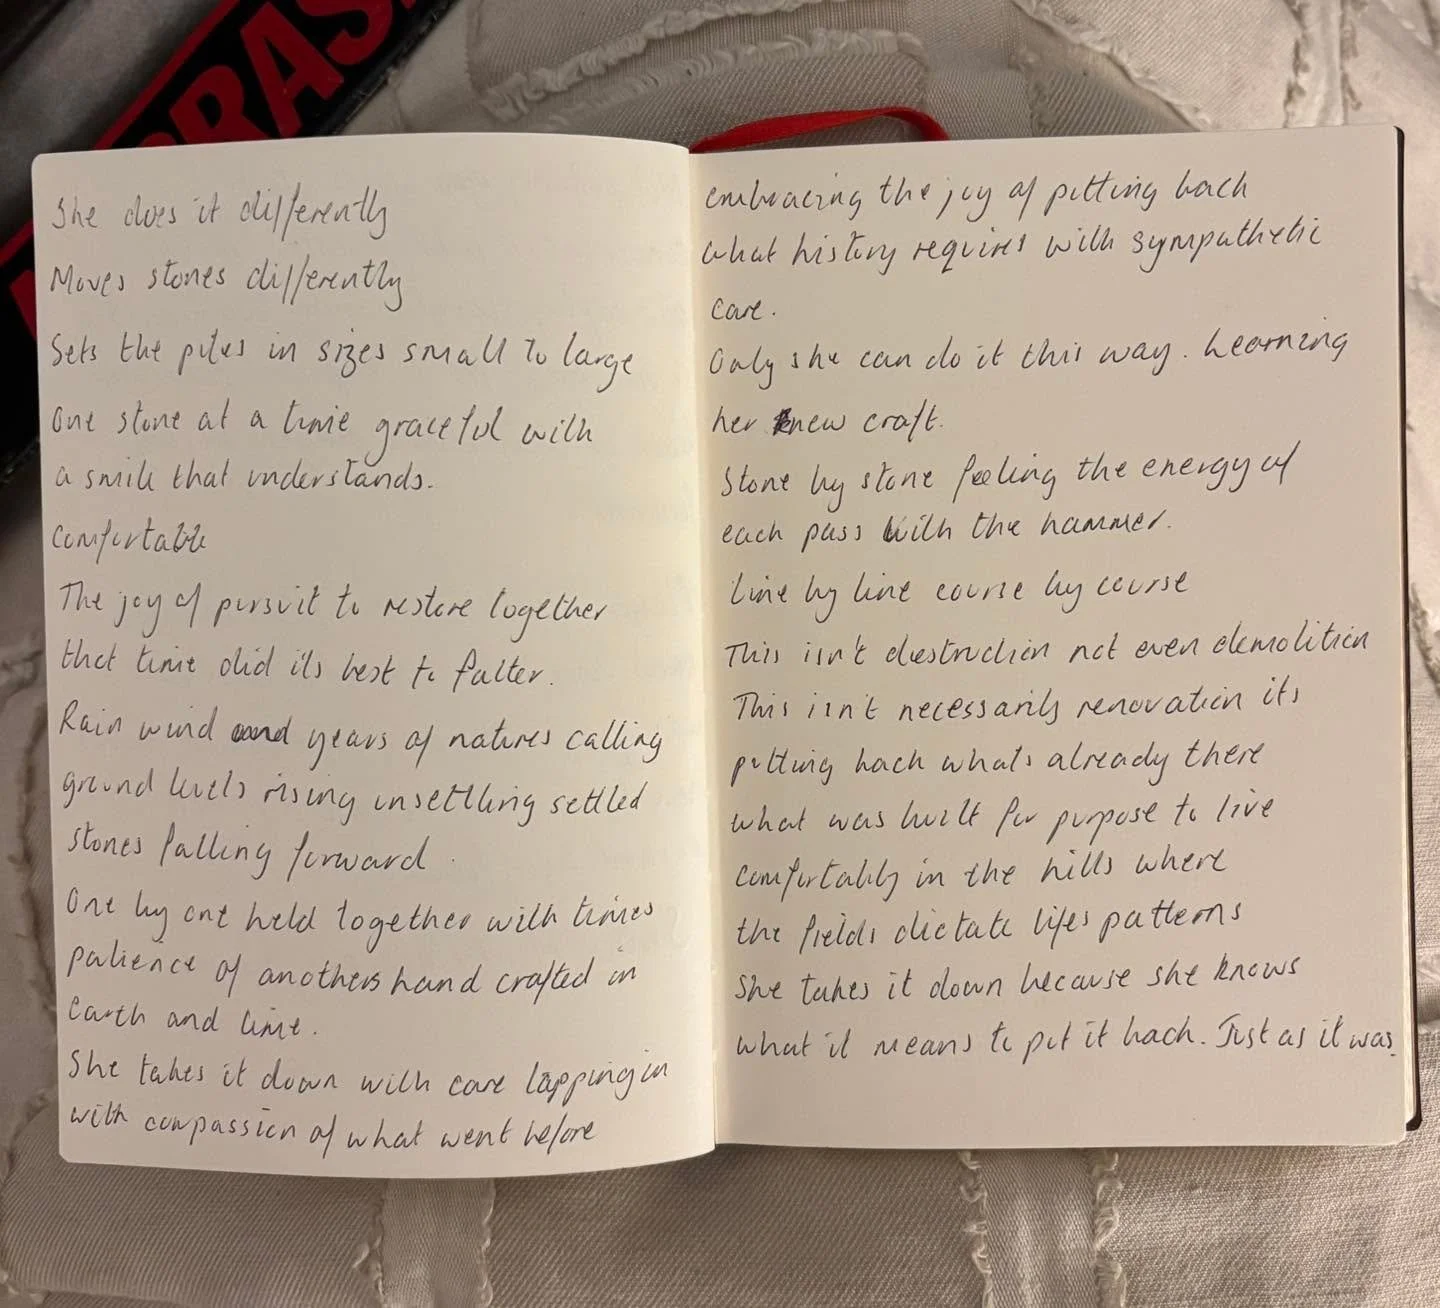 RAS
She does it differently
Moves stones differently
Sets the piles in sizes small to large
One stone at a time graceful with
a smile that understands.
Comfortable
The joy of pursuit to restore together
that time did its best to falter.
Rain wind and years of natures calling
ground levels rising unsettling settled
stones falling forward.
One by one held together with times
patience of anothers hand crafted in
Earth and lime.
She takes it down with care lapping in
with compassion of what went before
embracing the joy of putting back
what history requires with sympathetic
care.
Only she can do it this way. Learning
her new craft.
Stone by stone feeling the energy of
each pass with the hammer.
Line by line course by course
This isn't destruction not even demolition
This isn't necessarily renovation its
putting back whats already there
what was built for purpose to live
comfortably in the hills where
the fields dictate lifes patterns
She takes it down because she knows
what it means to put it back. Just as it was.